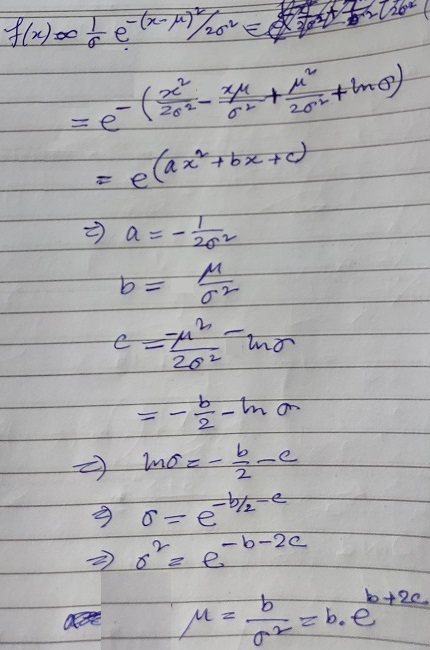 f(x) ∝ 1/σ e^-(x-μ)²/2σ² =
= e^-(x²/2σ² - xμ/σ² + μ²/2σ² + lnσ)
= e^(ax² + bx + c)
⇒ a = -1/2σ²
b = μ/σ²
c = -μ²/2σ² - lnσ
= -b/2 - ln σ
⇒ lnσ = -b/2 - c
⇒ σ = e^-b/2-c
⇒ σ² = e^-b-2c
μ = b/σ² = b. e^b+2c